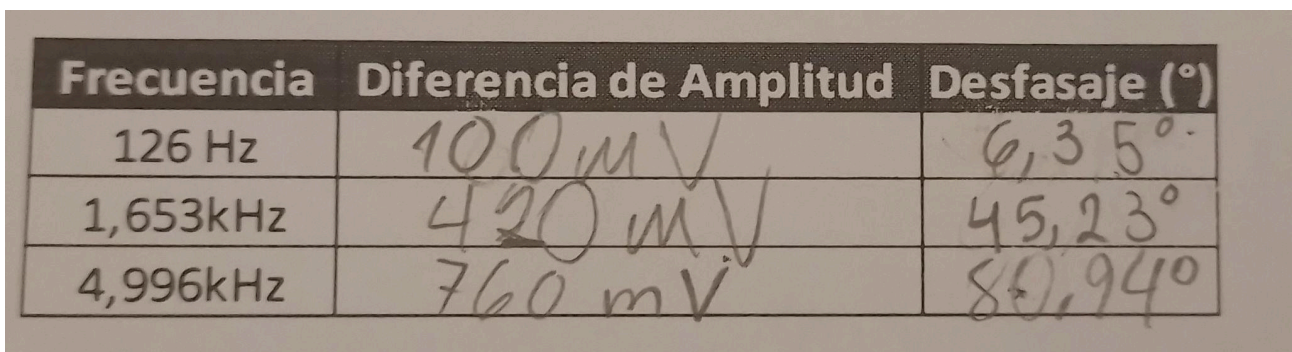 Frecuencia Diferencia de Amplitud Desfasaje (°)
126 Hz 100 mV 6,35°
1,653kHz 420 mV 45,23°
4,996kHz 760 mV 80,94°